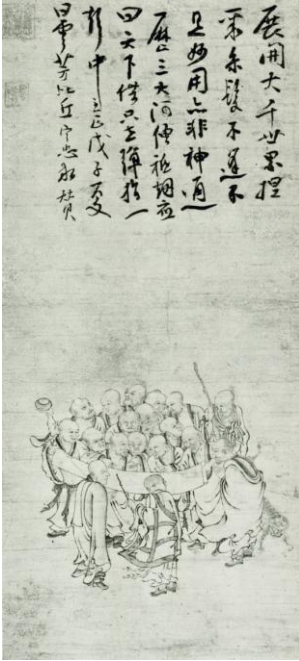 展開大千世界捏
聚糸髮不遺不
是妙用亦非神通
歷三大阿僧祇劫應
四天下供只在彈指一
聲中至正戊子夏
日曇芳比丘守忠敬贊